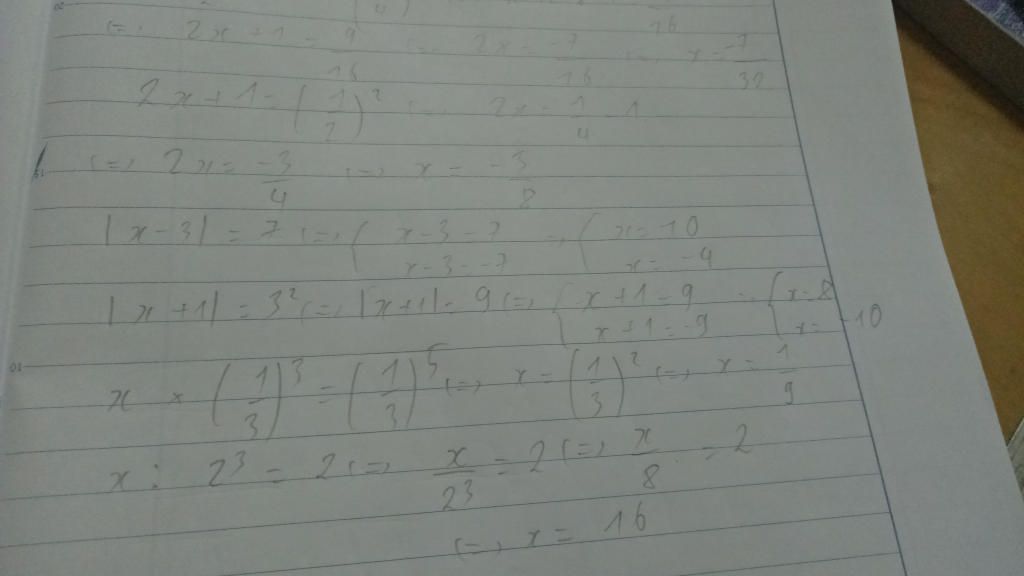 (=) 2x+1 = 9/16 (=) 2x = -7/16 (=) x = -7/32
2x+1 = (1/2)² (=) 2x = 1/4 - 1
(=) 2x = -3/4 (=) x = -3/8
|x-3| = 7 (=) { x-3 = 7 =) { x = 10
x-3 = -7 x = -4
|x+1| = 3² (=) |x+1| = 9 (=) { x+1 = 9 = { x = 8
x+1 = -9 x = -10
x × (1/3)³ = (1/3)⁵ (=) x = (1/3)² (=) x = 1/9
x : 2³ = 2 (=) x/2³ = 2 (=) x/8 = 2
(=) x = 16